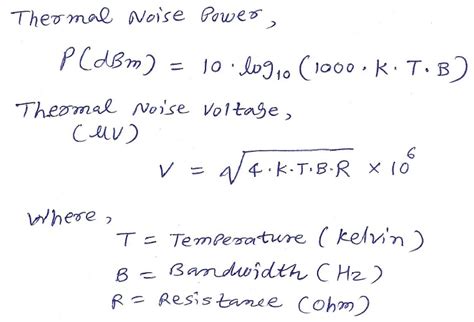 Thermal Noise Power,
P(dBm) = 10 · log₁₀ (1000 · K · T · B)
Thermal Noise Voltage,
(μV)
V = √4·K·T·B·R × 10⁶
Where,
T = Temperature (Kelvin)
B = Bandwidth (Hz)
R = Resistance (Ohm)